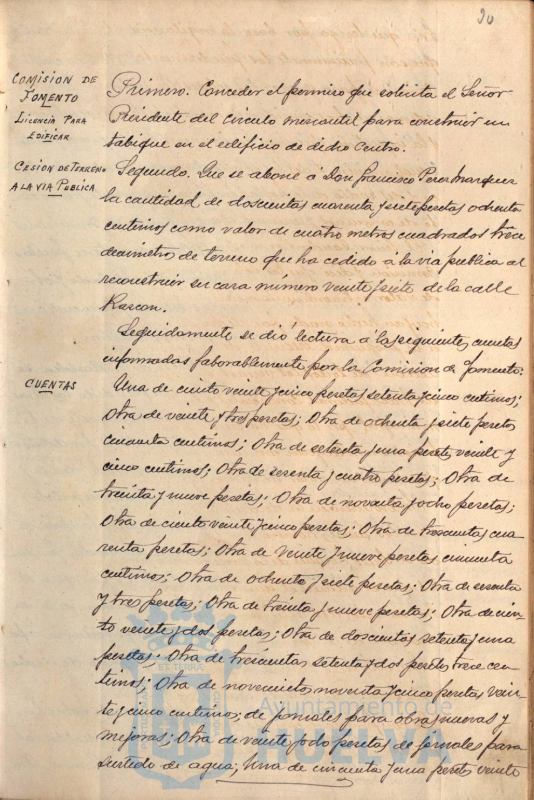 90
COMISION DE
FOMENTO
LICENCIA PARA
EDIFICAR
Primero. Conceder el permiso que solicita el Señor
Presidente del circulo mercantil para construir un
tabique en el edificio de dicho Centro.
CESION DE TERRENO
A LA VIA PUBLICA
Segundo. Que se abone á Don Francisco Perez Marquez
la cantidad de doscientas cuarenta y siete pesetas ochenta
centimos como valor de cuatro metros cuadrados trece
decimetros de terreno que ha cedido á la via publica al
reconstruir su casa número veinte y siete de la calle
Rascon.
Seguidamente se dió lectura á las siguientes cuentas
informadas faborablemente por la Comision de Fomento:
CUENTAS
Una de ciento veinte y cinco pesetas setenta y cinco centimos;
Otra de veinte y tres pesetas; Otra de ochenta y siete pesetas
cincuenta centimos; Otra de setenta y una pesetas veinte y
cinco centimos; Otra de sesenta y cuatro pesetas; Otra de
treinta y nueve pesetas; Otra de noventa y ocho pesetas;
Otra de ciento veinte y cinco pesetas; Otra de trescientas cua
renta pesetas; Otra de veinte y nueve pesetas cincuenta
centimos; Otra de ochenta y siete pesetas; Otra de sesenta
y tres pesetas; Otra de treinta y nueve pesetas; Otra de cien-
to veinte y dos pesetas; Otra de doscientas setenta y una
pesetas; Otra de trescientas setenta y dos pesetas trece cen-
timos; Otra de novecientas noventa y cinco pesetas vein-
te y cinco centimos; de jornales para obras nuevas y
mejoras; Otra de veinte y ocho pesetas de jornales para
surtido de agua; Una de cincuenta y una pesetas veinte
Ayuntamiento de
HUELVA